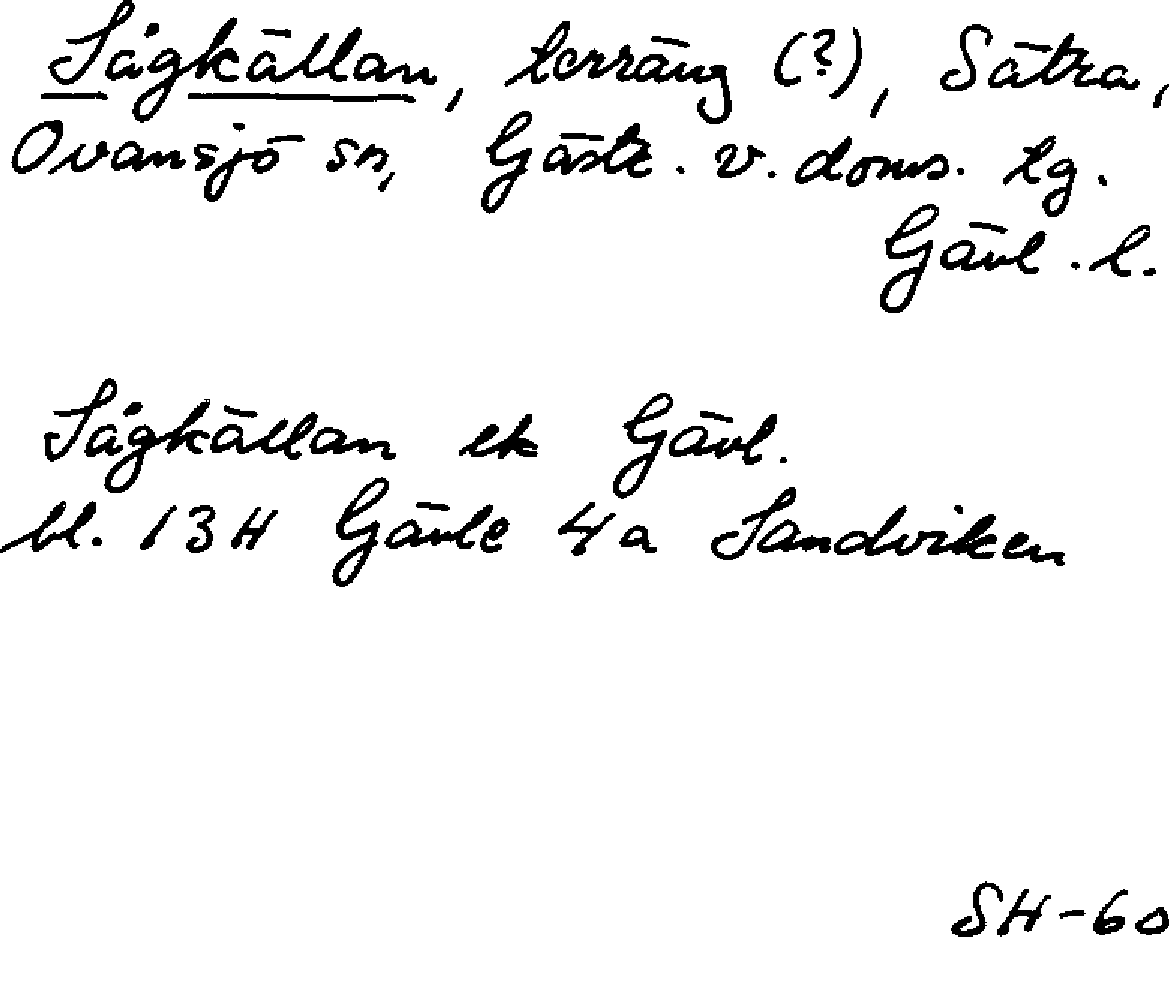 Sågkällan, terräng (?), Sätra,
Ovansjö sn, Gästr. v. doms. tg.
Gävl. l.
Sågkällan ek Gävl.
bl. 13H Gävle 4a Sandviken
SH-60